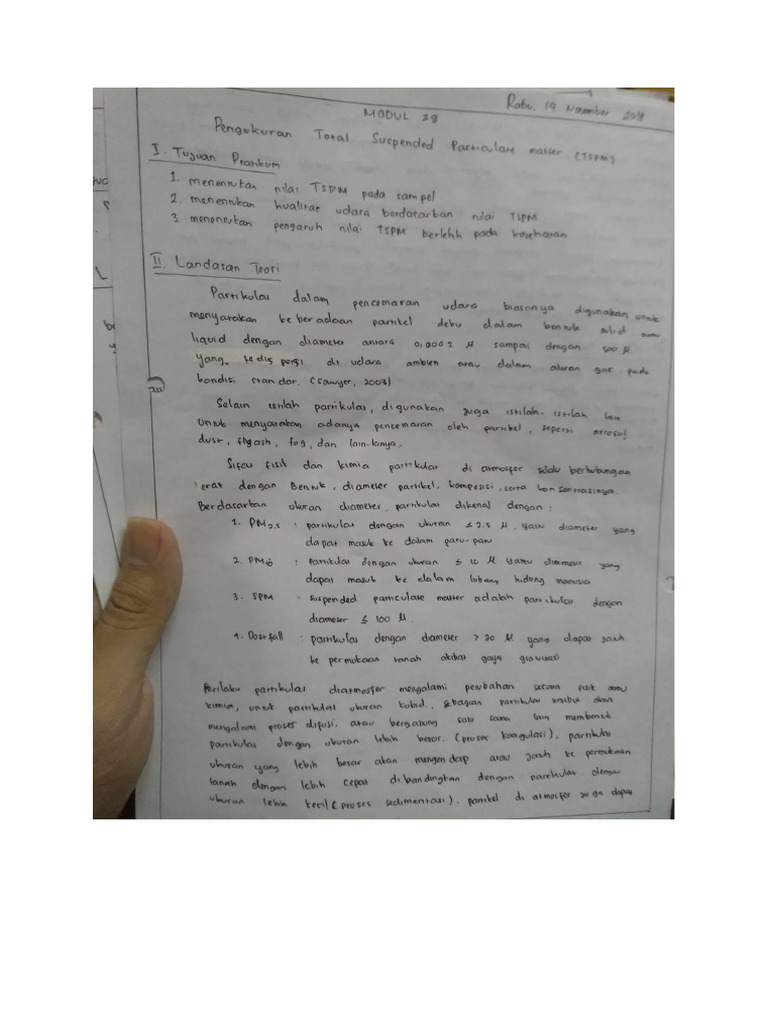 Rabu, 14 November 2018
MODUL 29
Pengukuran Total Suspended Particulate matter (TSPM)
I. Tujuan Pratikum
1. menentukan nilai TSPM pada sampel
2. menentukan kualitas udara berdasarkan nilai TSPM
3. menentukan pengaruh nilai TSPM berlebih pada kesehatan
II. Landasan Teori
Partikulat dalam pencemaran udara biasanya digunakan untuk
menyatakan keberadaan partikel debu dalam bentuk solid atau
liquid dengan diameter antara 0,0002 μ sampai dengan 500 μ
yang terdispersi di udara ambien atau dalam aliran gas pada
kondisi standar. (Sawyer, 2003)
Selain istilah partikulat, digunakan juga istilah-istilah lain
untuk menyatakan adanya pencemaran oleh partikel, seperti aerosol
dust, flyash, fog, dan lain-lainya.
Sifat fisik dan kimia partikulat di atmosfer selalu berhubungan
erat dengan Bentuk, diameter partikel, komposisi, serta konsentrasinya.
Berdasarkan ukuran diameter, partikulat dikenal dengan :
1. PM2.5 : partikulat dengan ukuran ≤ 2.5 μ, yaitu diameter yang
dapat masuk ke dalam paru-paru
2. PM10 : partikulat dengan ukuran ≤ 10 μ yaitu diameter yang
dapat masuk ke dalam lubang hidung manusia
3. SPM : suspended particulate matter adalah partikulat dengan
diameter ≤ 100 μ.
4. Dustfall : partikulat dengan diameter > 20 μ yang dapat jatuh
ke permukaan tanah akibat gaya gravitasi
Perilaku partikulat diatmosfer mengalami perubahan secara fisik atau
kimia, untuk partikulat ukuran koloid, sebagian partikulat tersebut akan
mengalami proses difusi, atau bergabung satu sama lain membentuk
partikulat dengan ukuran lebih besar. (proses koagulasi), partikulat
ukuran yang lebih besar akan mengendap atau jatuh ke permukaan
tanah dengan lebih cepat dibandingkan dengan partikulat dengan
ukuran lebih kecil (proses sedimentasi). partikel di atmosfer juga dapat